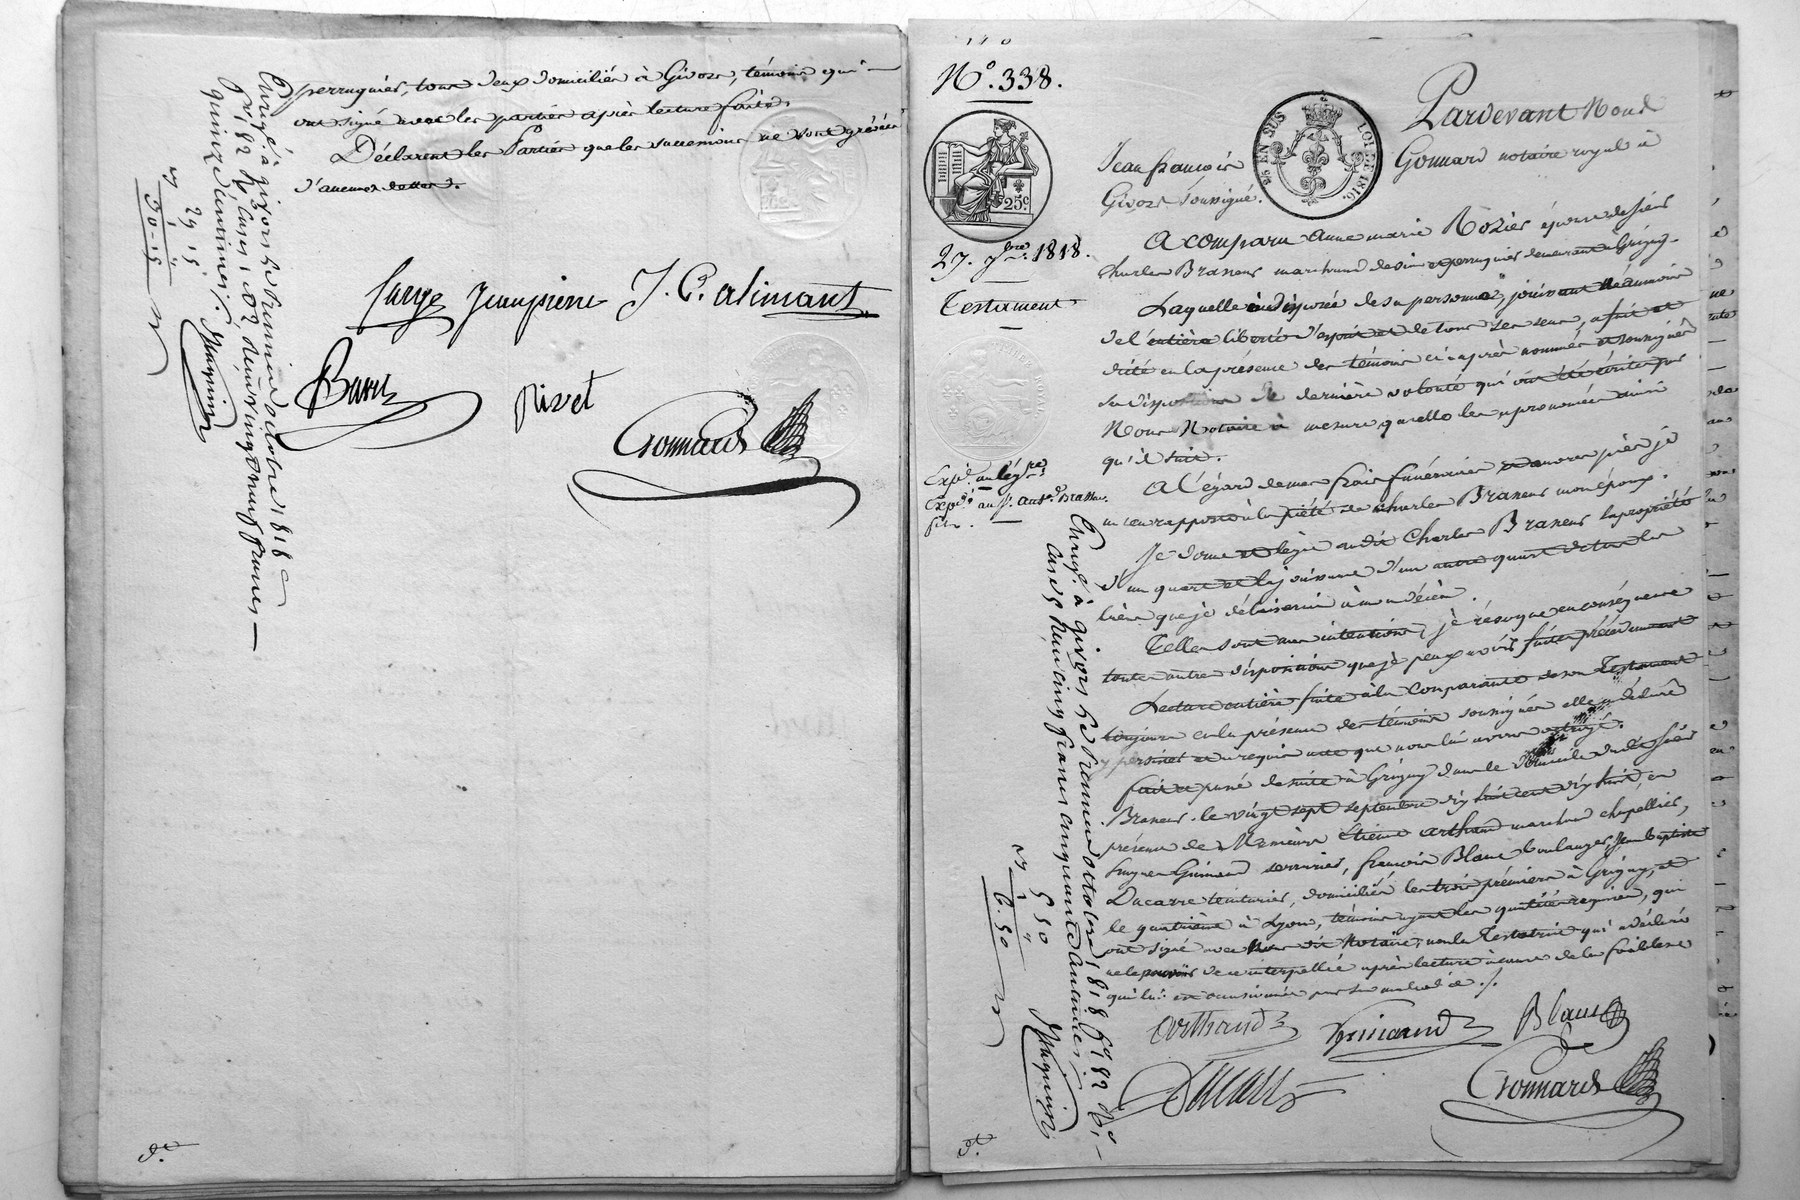 perruquier, tous deux domiciliés à Givors, témoins qui
ont signé avec les parties après lecture faite.
Déclarent les Parties que les successions ne sont grevées
d'aucunes dettes.
Large Jeanpierre J. C. alimant
Rivet
Gonnard
Enrgé. à givors le premier octobre 1818
quinze centimes
29 15
30-15
N.º 338.
25 EN SUS
LOI DE 1816.
25.c
27. 7bre. 1818.
Testament
Expé. au
Expé. au
fils.
Pardevant Nous
Jean françois Gonnard notaire royal à
Givors soussigné.
A comparu Anne marie Rozier épouse de sieur
Charles Braneus marchand de vin et perruquier demeurant à Grigny.
Laquelle indisposée de sa personne, jouissant néanmoins
de l'entière liberté d'esprit et de tous ses sens, a fait et
dicté en la présence des témoins ci après nommés et soussignés
ses dispositions de dernière volonté qui ont été écrites par
Nous Notaire à mesure quelle les a prononcées ainsi
qu'il suit.
A l'égard de mes frais funéraires et œuvres pies je
m'en rapporte à la piété de Charles Braneus mon époux.
Je donne et lègue audit Charles Braneus la propriété
d'un quart et la jouissance d'un autre quart de tous les
biens que je délaisserai à mon décès.
Telles sont mes intentions, je révoque en conséquence
toutes autres dispositions que je peux avoir faites précédemment
Lecture entière faite à la comparante de son Testament
toujours en la présence des témoins soussignés elle a déclaré
y persister et requis acte que nous lui avons octroyé.
fait et passé de suite à Grigny dans le domicile dudit sieur
Braneus le vingt sept septembre dix huit cent dix huit, en
présence de Messieurs Etienne Arthaud marchand chapellier,
Guimaud serrurier, françois Blanc boulanger, Jean Baptiste
Ducarre teinturier, domiciliés les trois premiers à Grigny, et
le quatrième à Lyon, témoins ayant les qualités requises, qui
ont signé avec Nous dit Notaire, non la Testatrice qui a déclaré
ne le pouvoir de ce interpellée après lecture à cause de la faiblesse
qui lui est occasionnée par sa maladie ./.
Arthaud Guimaud Blanc
Ducarre Gonnard
Enrgé. à givors le premier octobre 1818 fº 82
cinq francs cinquante centimes
5 50
6. 50